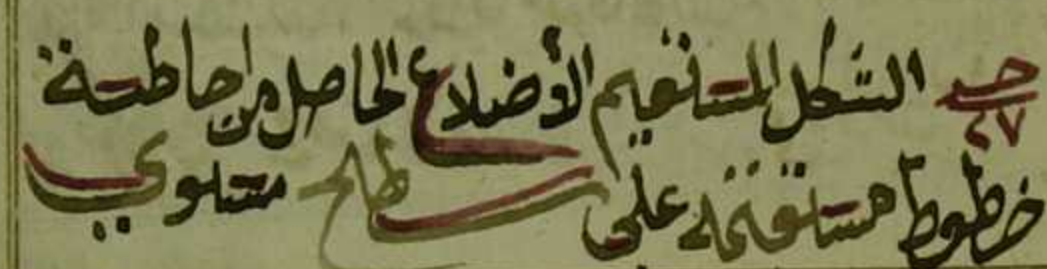 حد ٢٧ الشكل المستقيم الأضلاع الحاصل من احاطة
خطوط مستقيمة على سطح مستوي